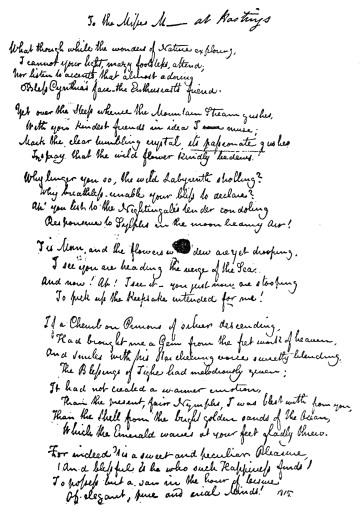 To the Misses M— at Hastings
What though while the wonders of Nature exploring,
I cannot your light, mazy footsteps attend;
Nor listen to accents that almost adoring
Bless Cynthia's face the Enthusiasts friend.
Yet over the Steep whence the Mountain Stream gushes
With you kindest friends in idea I muse;
Mark the clear tumbling crystal, its passionate gushes
Its spray that the wild flower kindly bedews.
Why linger you so, the wild Labyrinth strolling?
Why breathless, unable your bliss to declare?
Ah! you list to the Nightingale's tender condoling
Responsive to Sylphs in the moon beamy air!
Tis Morn, and the flowers w dew are yet drooping,
I see you are treading the verge of the Sea:
And now! Ah! I see it — you just now are stooping
To pick up the Keepsake intended for me!
If a Cherub on Pinions of silver descending,
Had brought me a Gem from the fret work of heaven,
And Smiles with his Star cheering voice sweetly blending,
The Blessings of Tighe had melodiously given;
It had not created a warmer emotion,
Than the present, fair Nymphs, I was blest with from you,
Than the Shell from the bright golden sands of the Ocean,
Which the Emerald waves at your feet gladly threw.
For indeed 'tis a sweet and peculiar Pleasure,
(And blissful is he who such Happiness finds)
To possess but a span in the hour of leisure
Of elegant, pure and aerial Minds! 1815